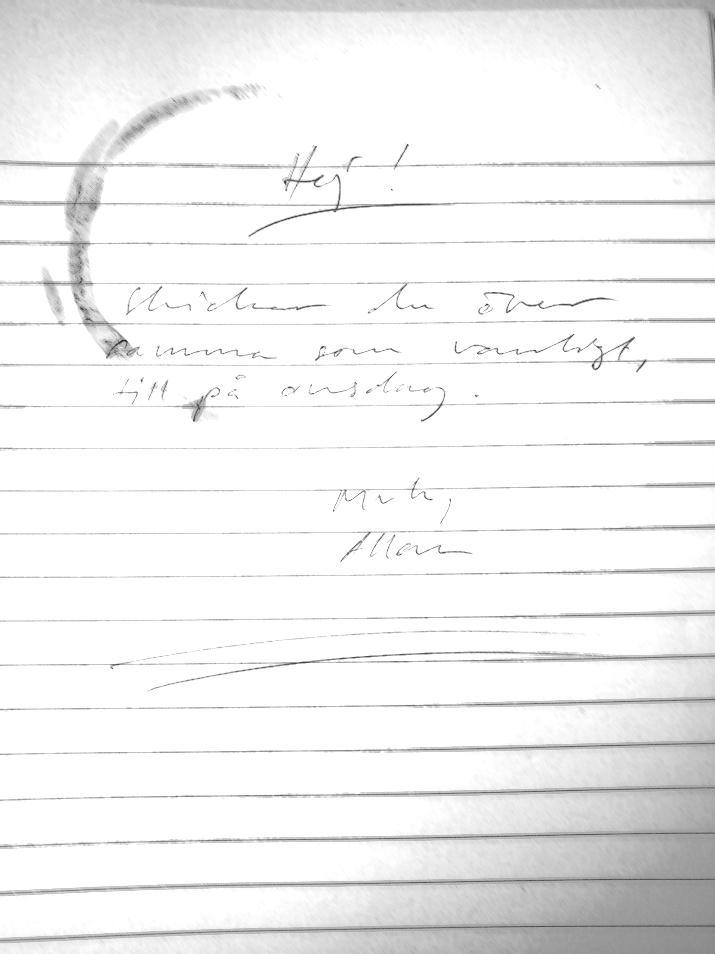 Hej!
Skickar du över
samma som vanligt,
till på onsdag.
Mvh,
Allan